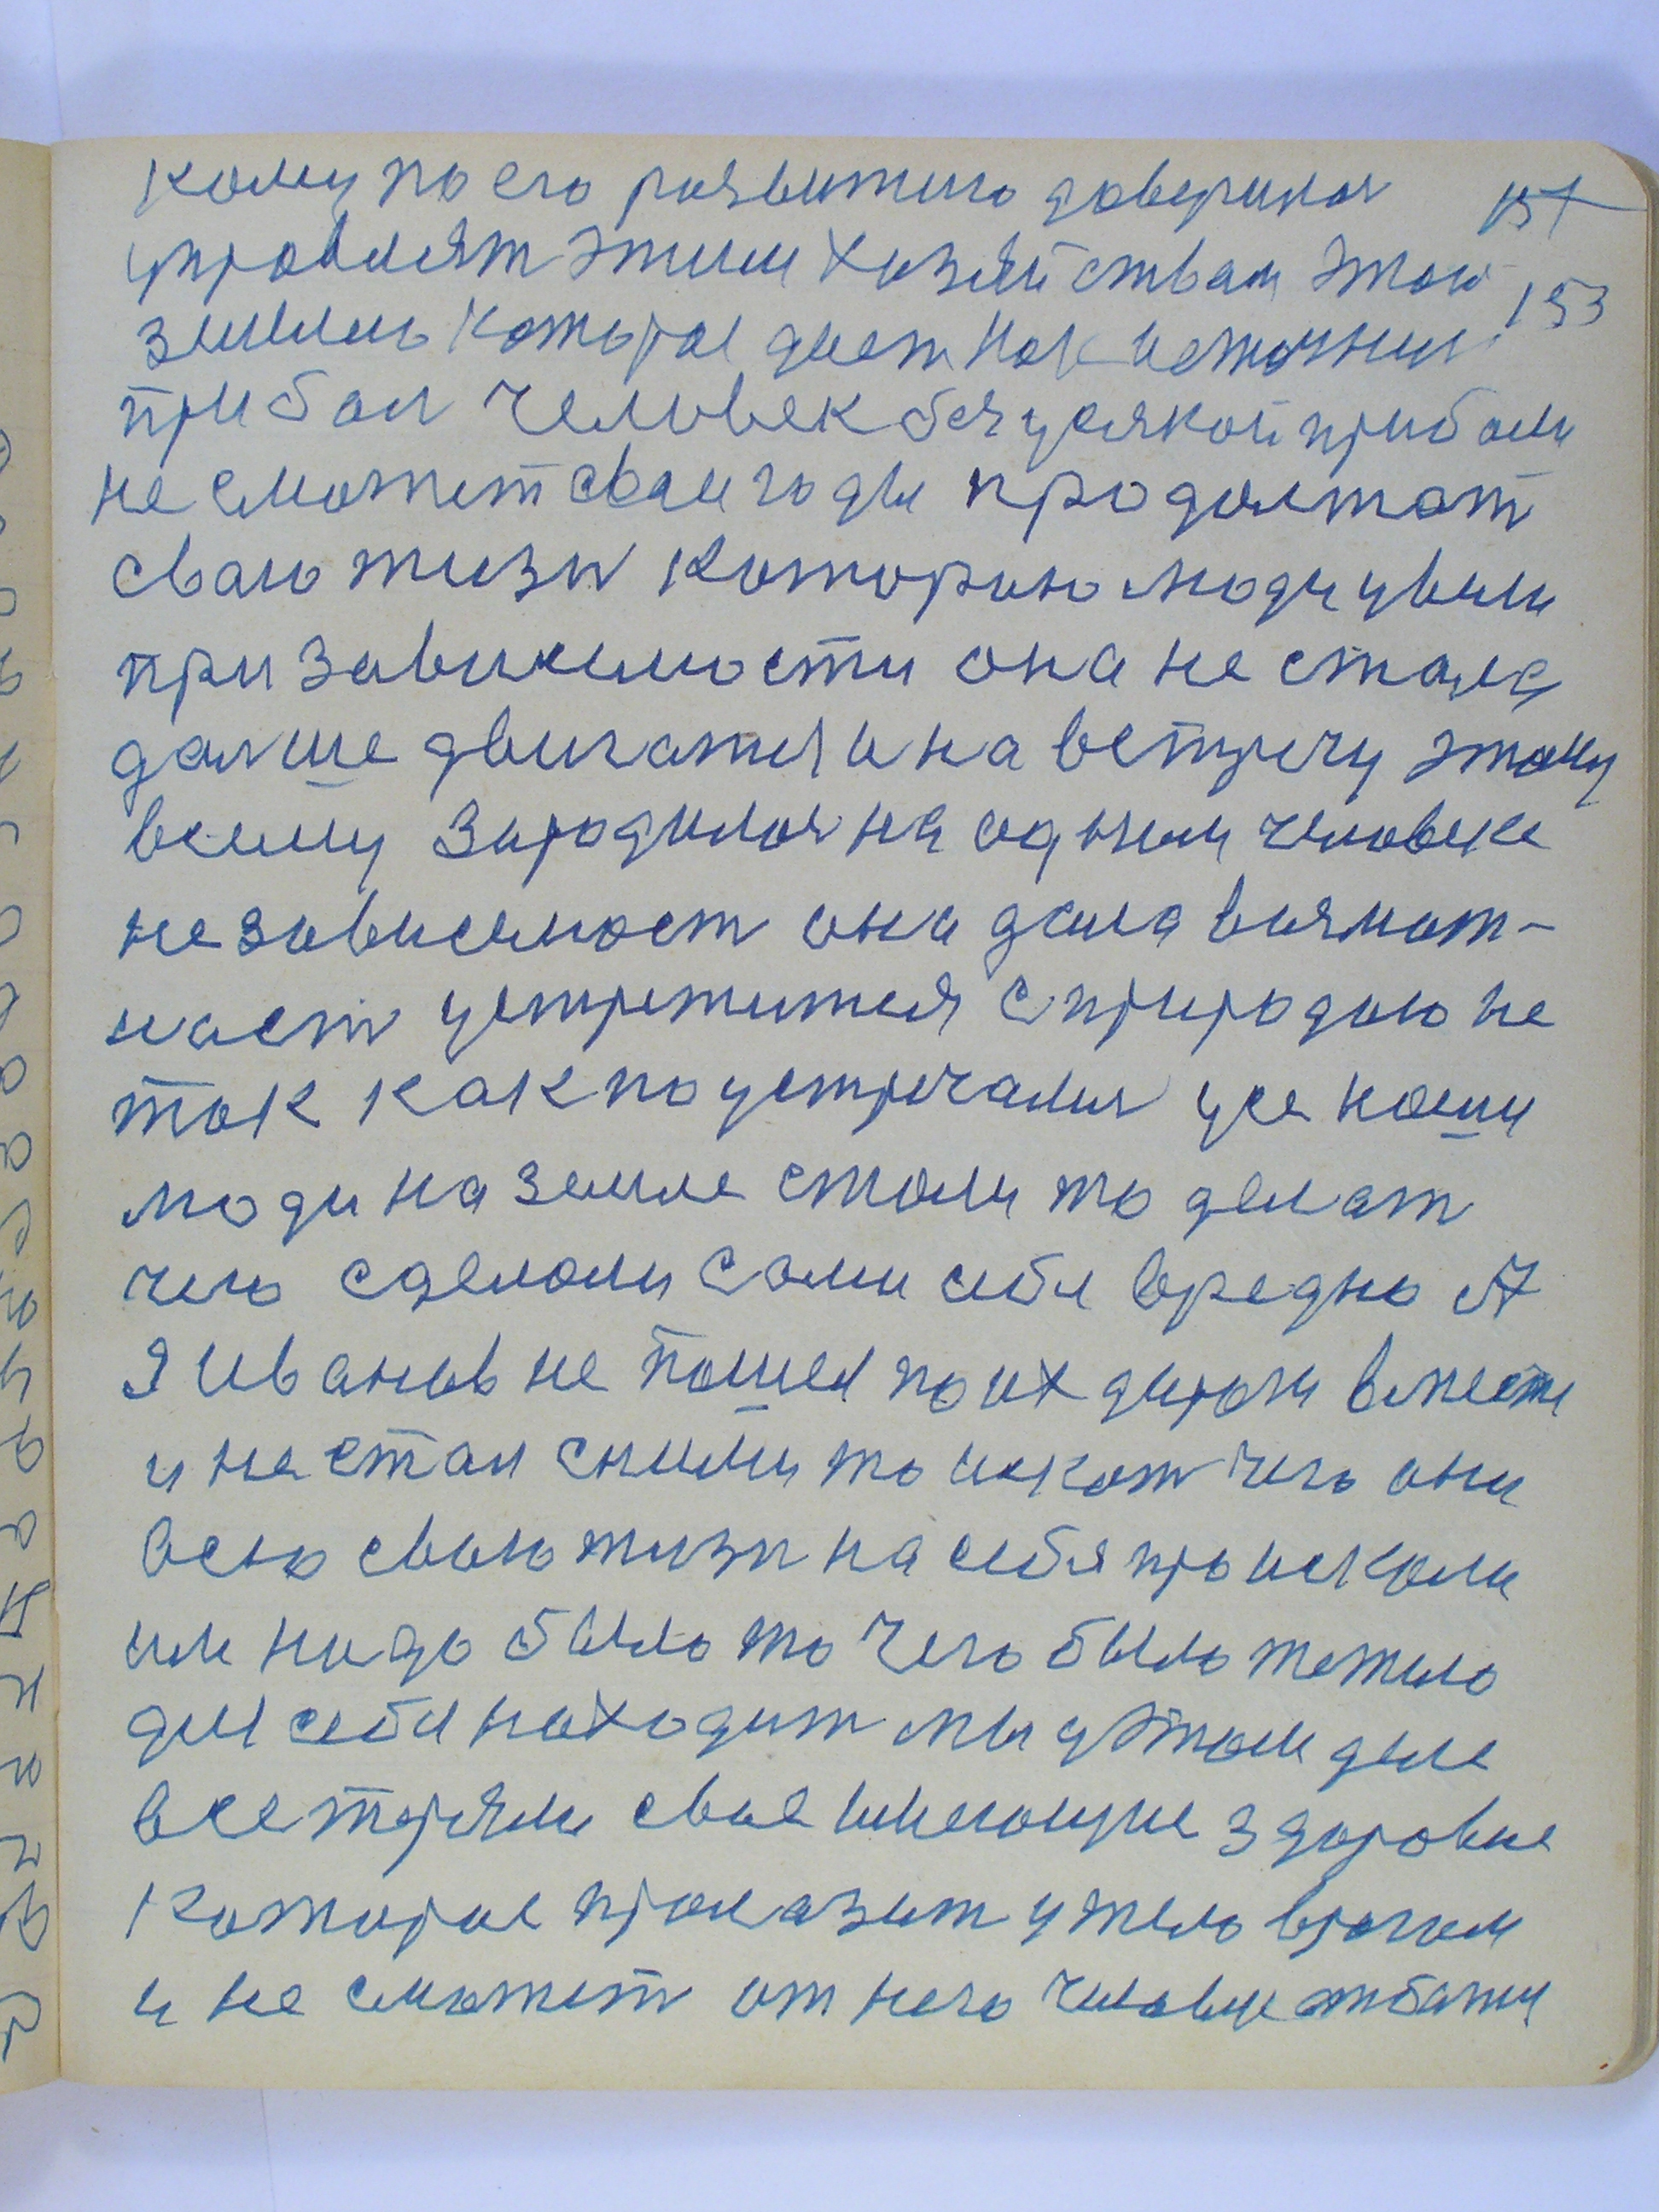 кому по его развитию доверился
157
управлят этим хозяйствам этой
153
землею которая дает как источник
прибал человек без усякой прибали
не сможет сваи годы продолжат
сваю жизн которою люди увели
при зависимости она не стала
далше двигатся и на встречу этому
всему зародился на одним человеке
независемаст она дала возмат-
ност устретится с природою не
так как по устречался усе наши
люди на земле стали то делат
чего сделали сами себе вредно А
Я Иванов не пошел по их дароги вместе
и не стал с ними то искат чего они
всю сваю жизн на себя происками
им надо было то чего было тежело
для себя находит мы у этом деле
все теряли свае имеющие здоровие
которае пролазит у тело врагам
и не сможет от него человек отбатц